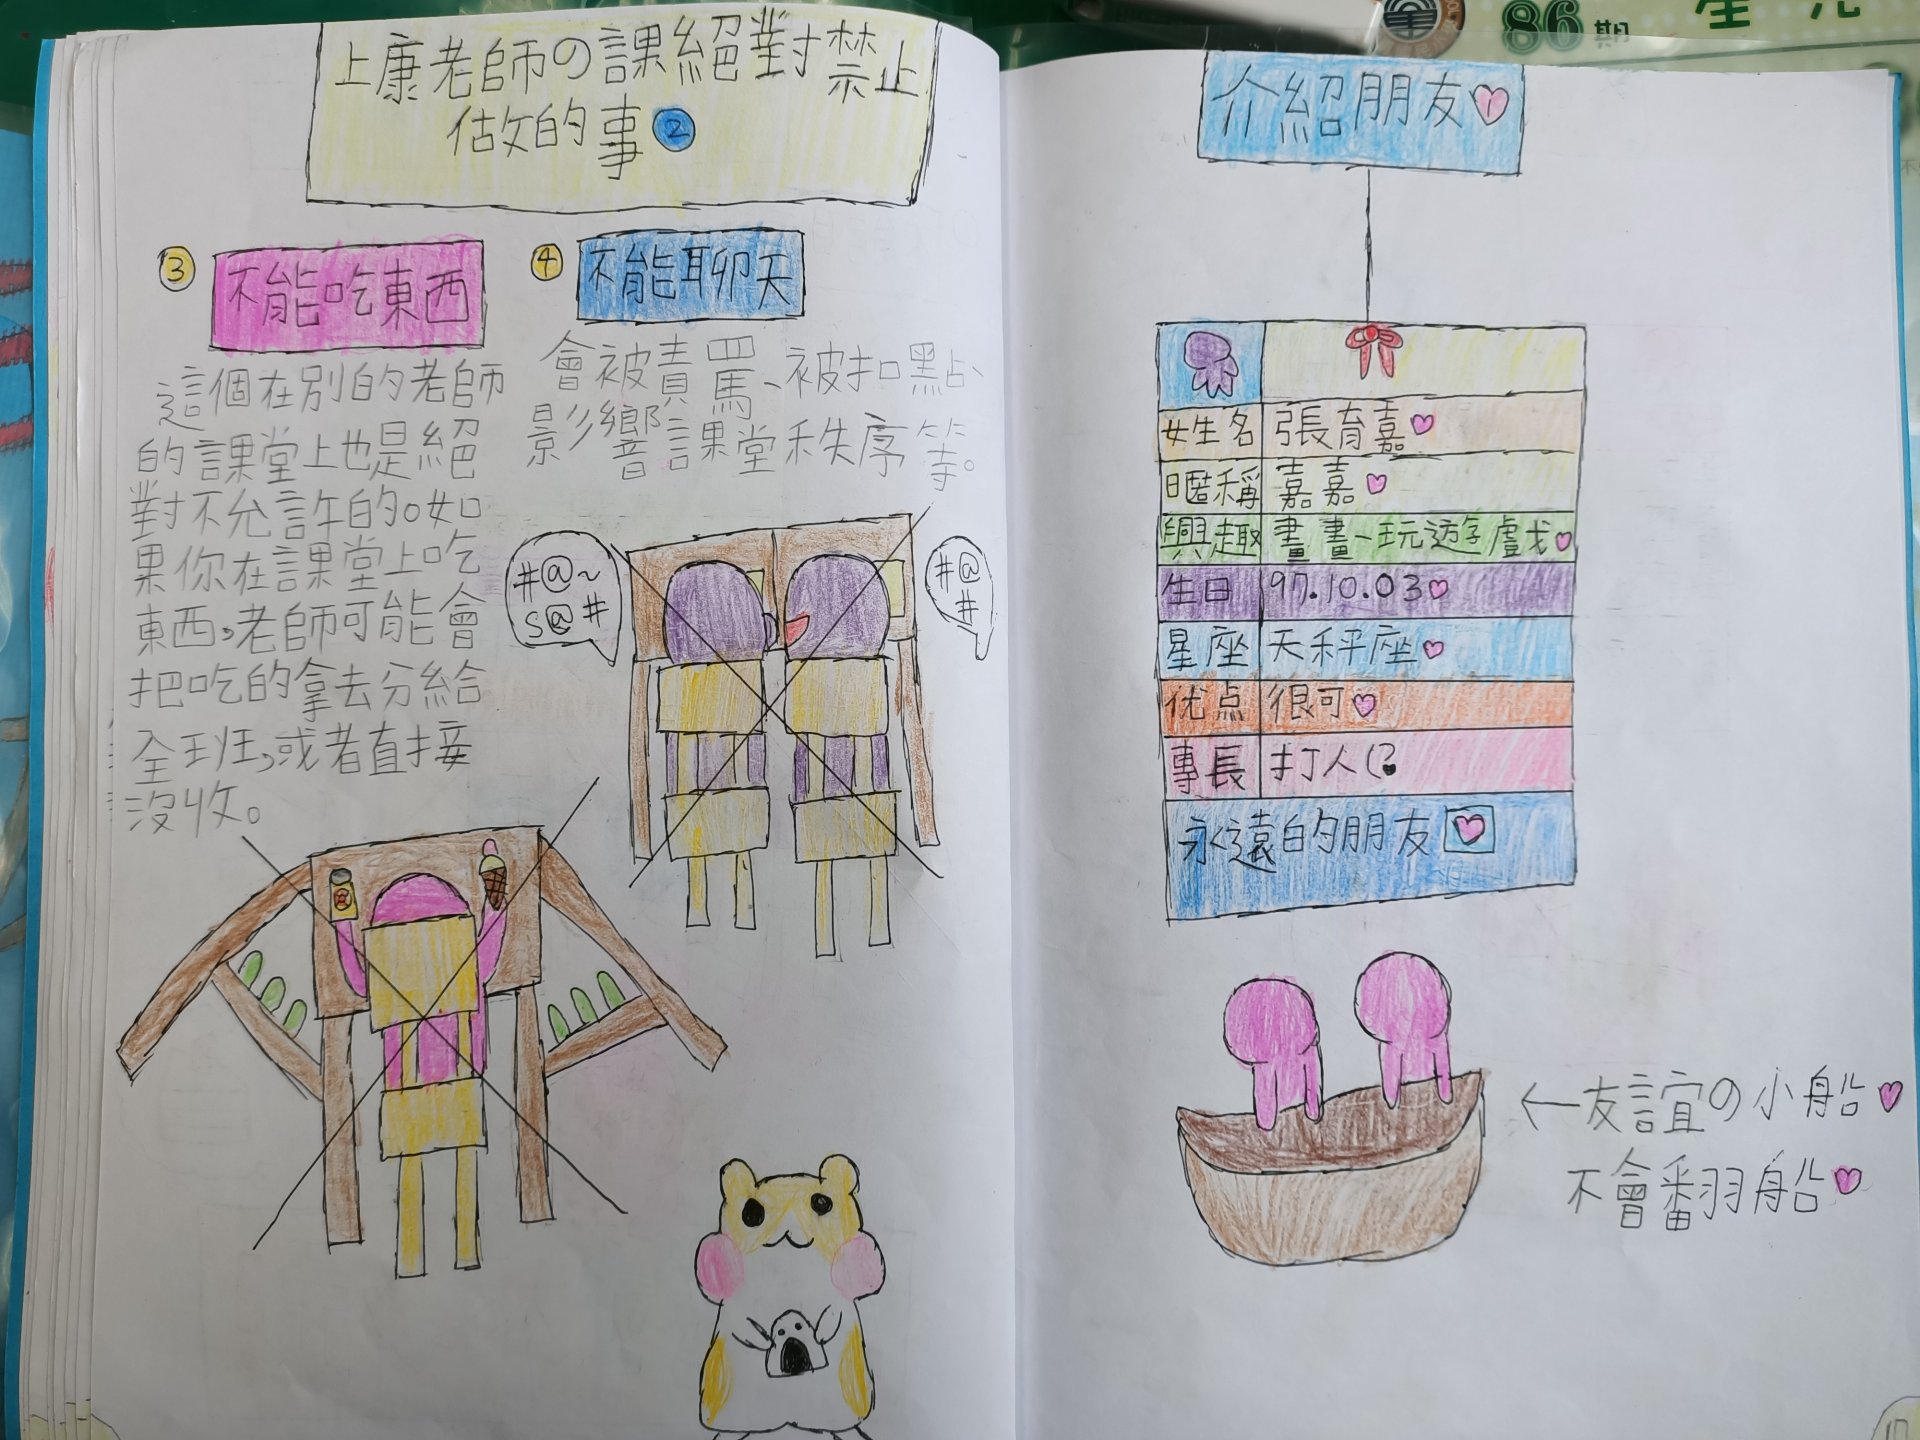 上康老師の課絕對禁止
做的事②
③ 不能吃東西
這個在別的老師
的課堂上也是絕
對不允許的。如
果你在課堂上吃
東西,老師可能會
把吃的拿去分給
全班,或者直接
沒收。
④ 不能聊天
會被責罵、被扣點、
影響課堂秩序等。
#@~
s@#
#@
#
86期
介紹朋友♡1
姓名 張育嘉♡
暱稱 嘉嘉♡
興趣 畫畫、玩遊戲♡
生日 97.10.03♡
星座 天秤座♡
优点 很可♡
專長 打人(?
永遠的朋友♡
←友誼の小船♡
不會翻船♡